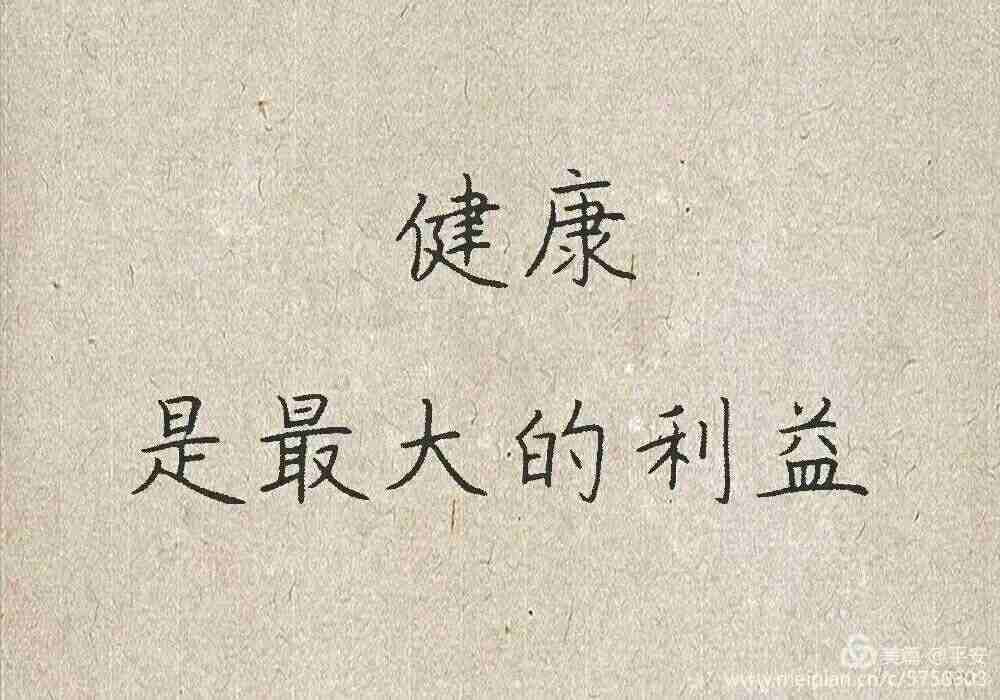 健康
是最大的利益
美篇 @平安
www.meipian.cn/c/5750303